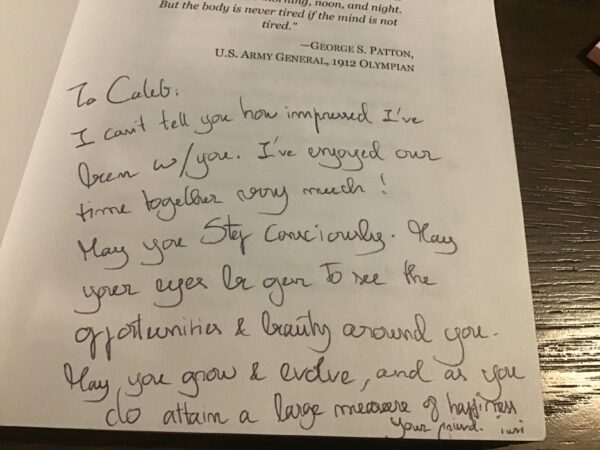 morning, noon, and night.
But the body is never tired if the mind is not
tired."
—GEORGE S. PATTON,
U.S. ARMY GENERAL, 1912 OLYMPIAN
To Caleb:
I can't tell you how impressed I've
been w/you. I've enjoyed our
time together very much!
May you Step Consciously. May
your eyes be open To see the
opportunities & beauty around you.
May you grow & evolve, and as you
do attain a large measure of happiness
Your friend.